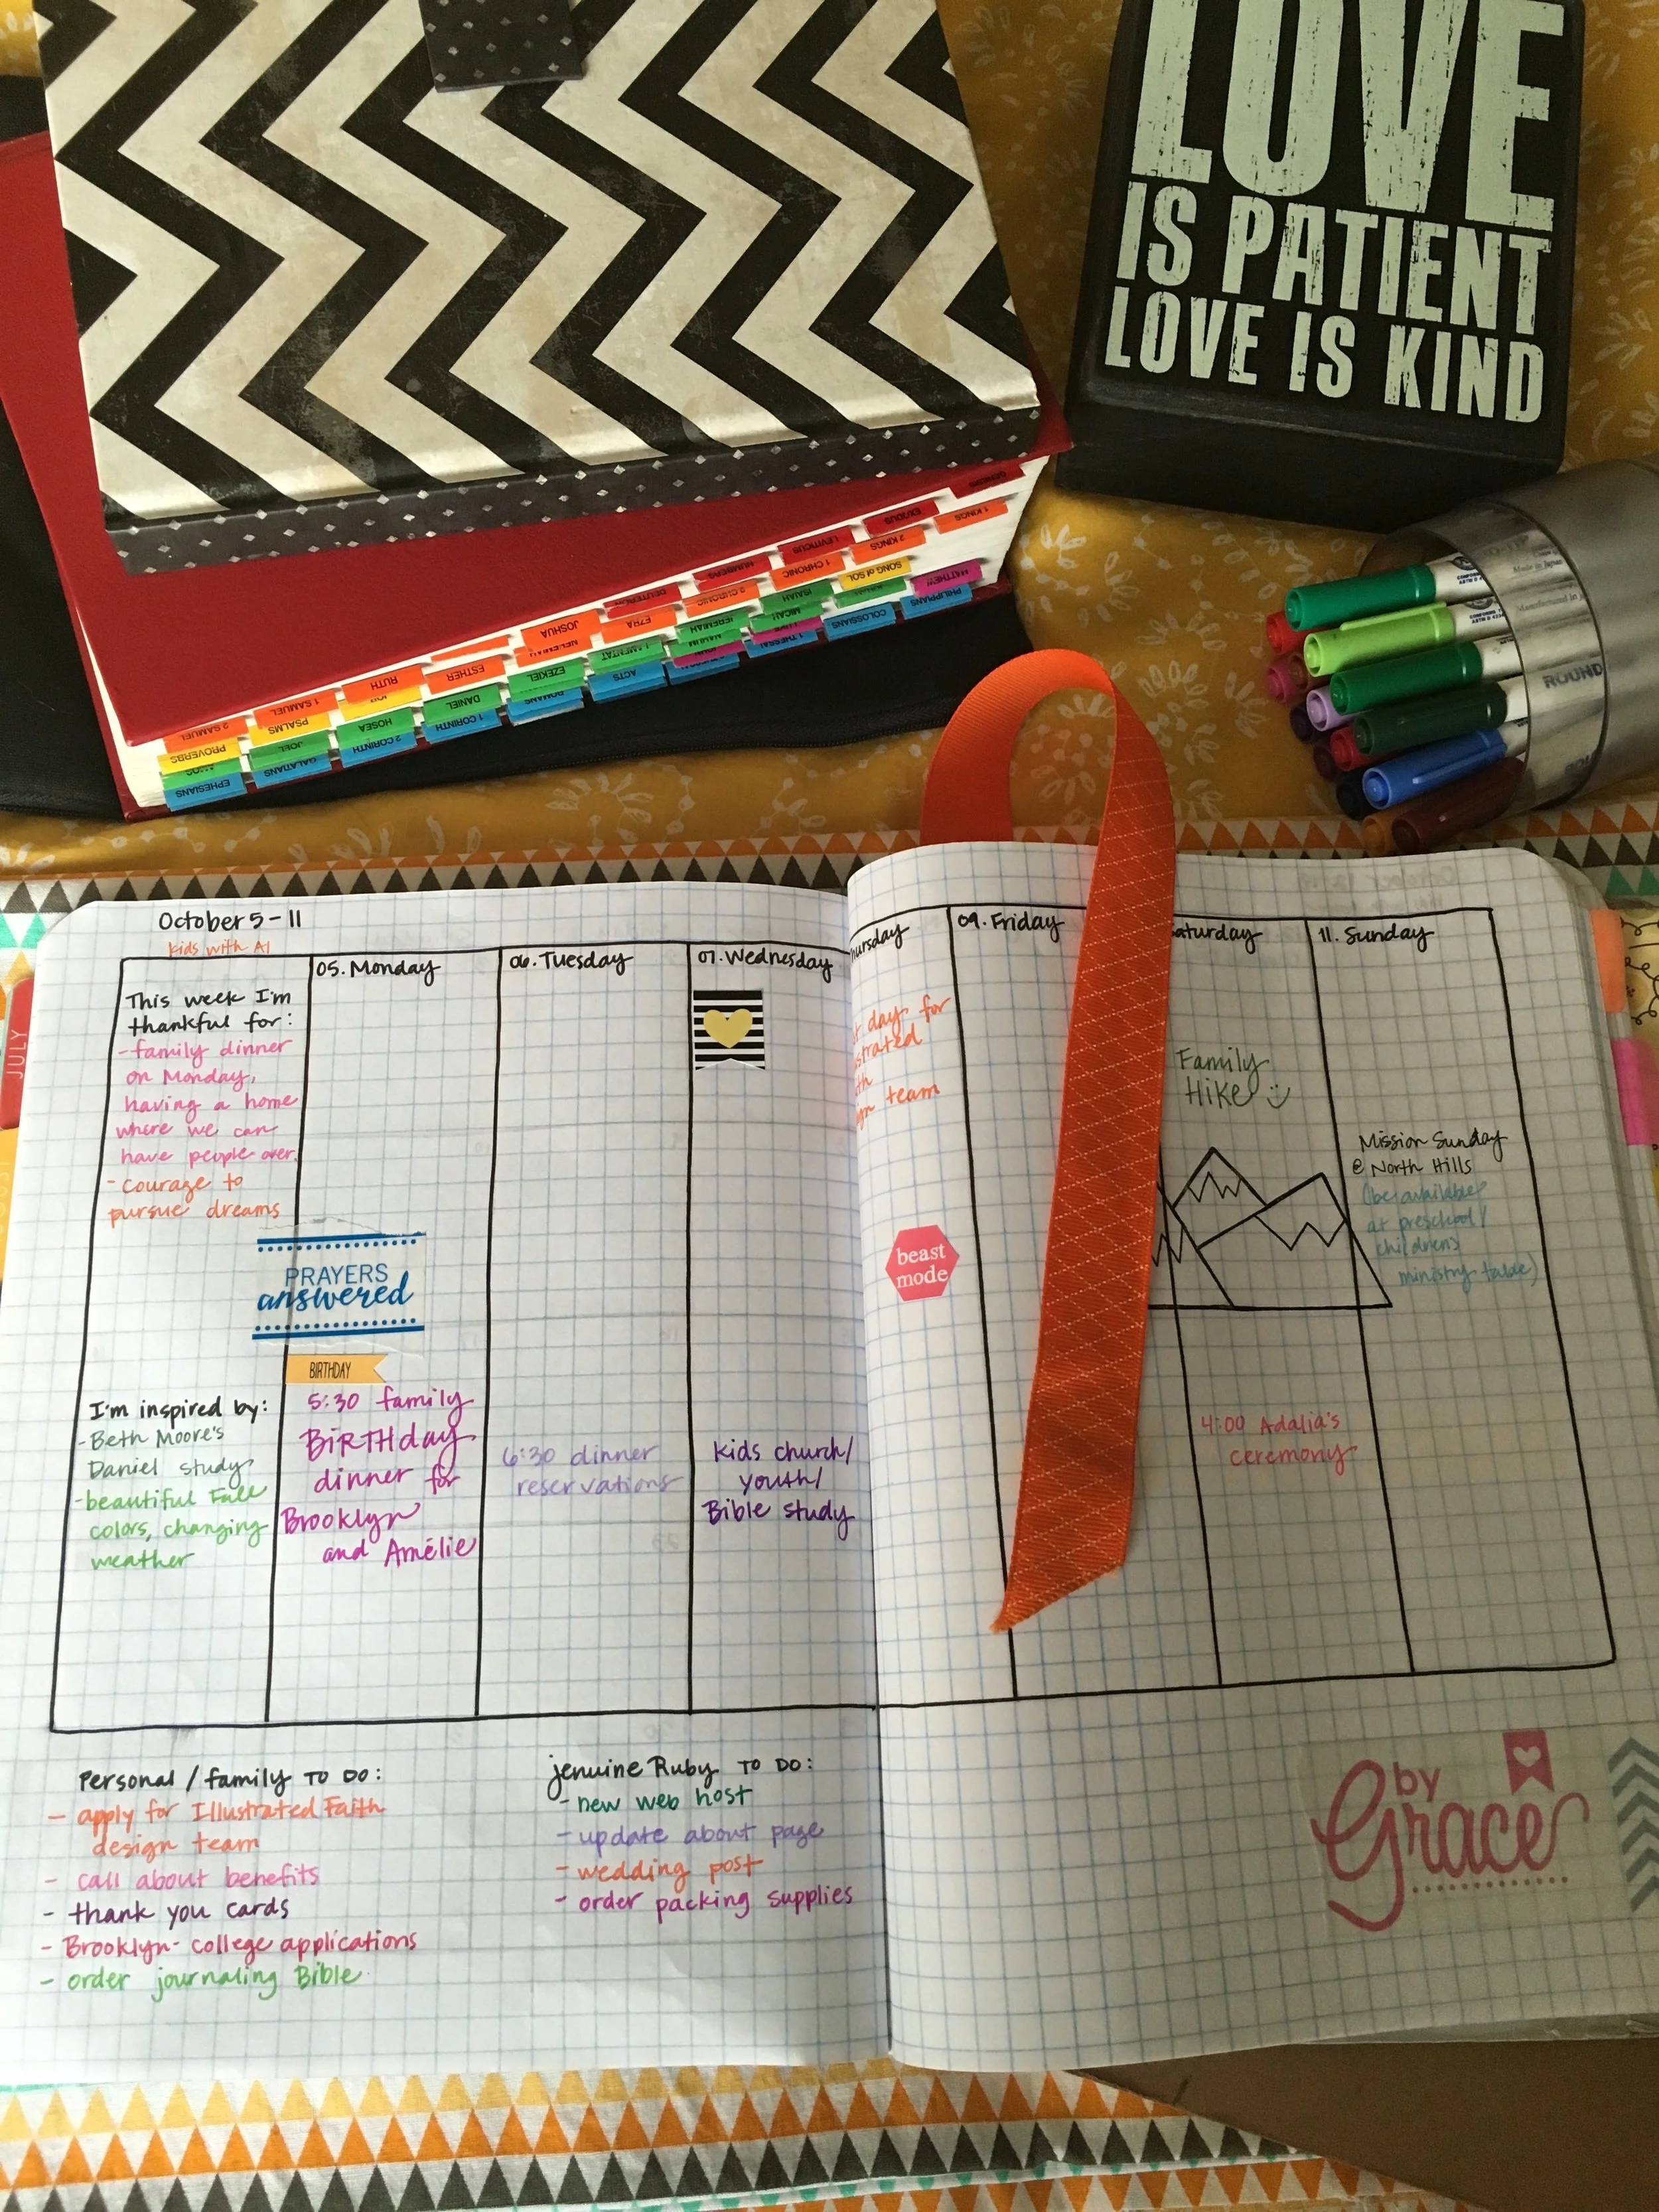 LOVE
IS PATIENT
LOVE IS KIND
GENESIS
EXODUS
LEVITICUS
NUMBERS
JOSHUA
RUTH
1 SAMUEL
2 SAMUEL
1 KINGS
2 KINGS
1 CHRONIC
2 CHRONIC
EZRA
ESTHER
PSALMS
PROVERBS
SONG of SOL
ISAIAH
JEREMIAH
EZEKIEL
DANIEL
HOSEA
JOEL
MICAH
NAHUM
ACTS
ROMANS
1 CORINTH
2 CORINTH
GALATIANS
EPHESIANS
PHILIPPIANS
COLOSSIANS
1 THESSAL
ROUND
JULY
October 5-11
kids with A1
This week I'm
thankful for:
- family dinner
on Monday,
having a home
where we can
have people over.
- courage to
pursue dreams
PRAYERS
answered
I'm inspired by:
- Beth Moore's
Daniel study
- beautiful Fall
colors, changing
weather
05. Monday
BIRTHDAY
5:30 family
BiRTHday
dinner for
Brooklyn
and Amélie
06. Tuesday
6:30 dinner
reservations
07. Wednesday
Kids church/
youth/
Bible study
ursday
day for
strated
team
beast
mode
09. Friday
aturday
Family
Hike
4:00 Adalia's
ceremony
11. Sunday
Mission Sunday
@ North Hills
(be available
at preschool/
childrens
ministry table)
Personal / family TO DO:
- apply for Illustrated Faith
design team
- call about benefits
- thank you cards
- Brooklyn- college applications
- order journaling Bible
jenuine Ruby TO DO:
- new web host
- update about page
- wedding post
- order packing supplies
by
Grace